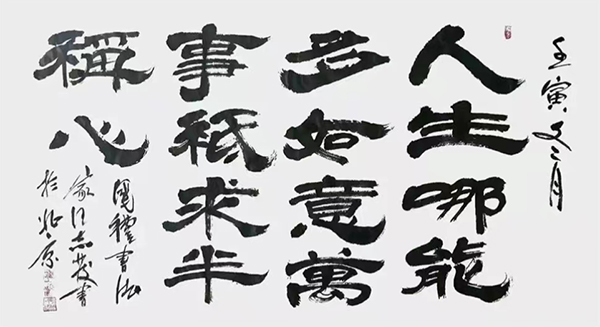 壬寅冬月
人生哪能
多如意萬
事祇求半
稱心
禮書法
家志發書
於